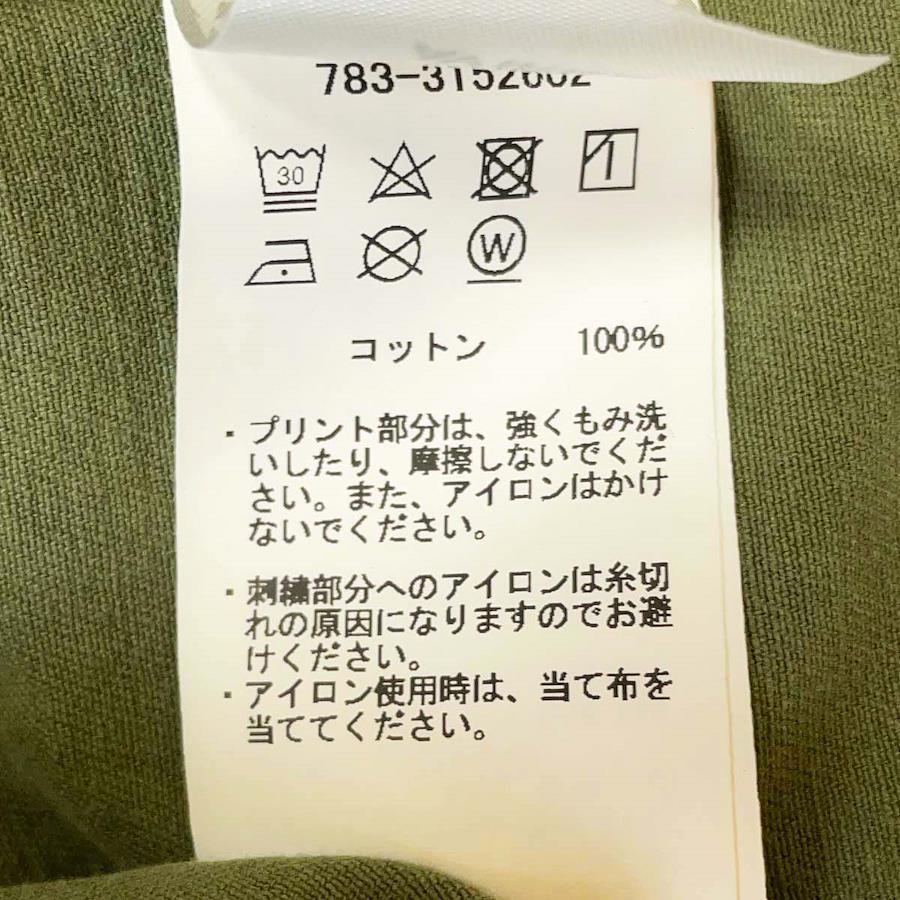 783-3152002
30
W
コットン 100%
・プリント部分は、強くもみ洗
いしたり、摩擦しないでくだ
さい。また、アイロンはかけ
ないでください。
・刺繍部分へのアイロンは糸切
れの原因になりますのでお避
けください。
・アイロン使用時は、当て布を
当ててください。